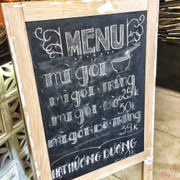 MENU
mì gói
mì gói-trứng
25k
mì gói-bò
30k
mì gói-bò-trứng
39k
HẠT HƯỚNG DƯƠNG